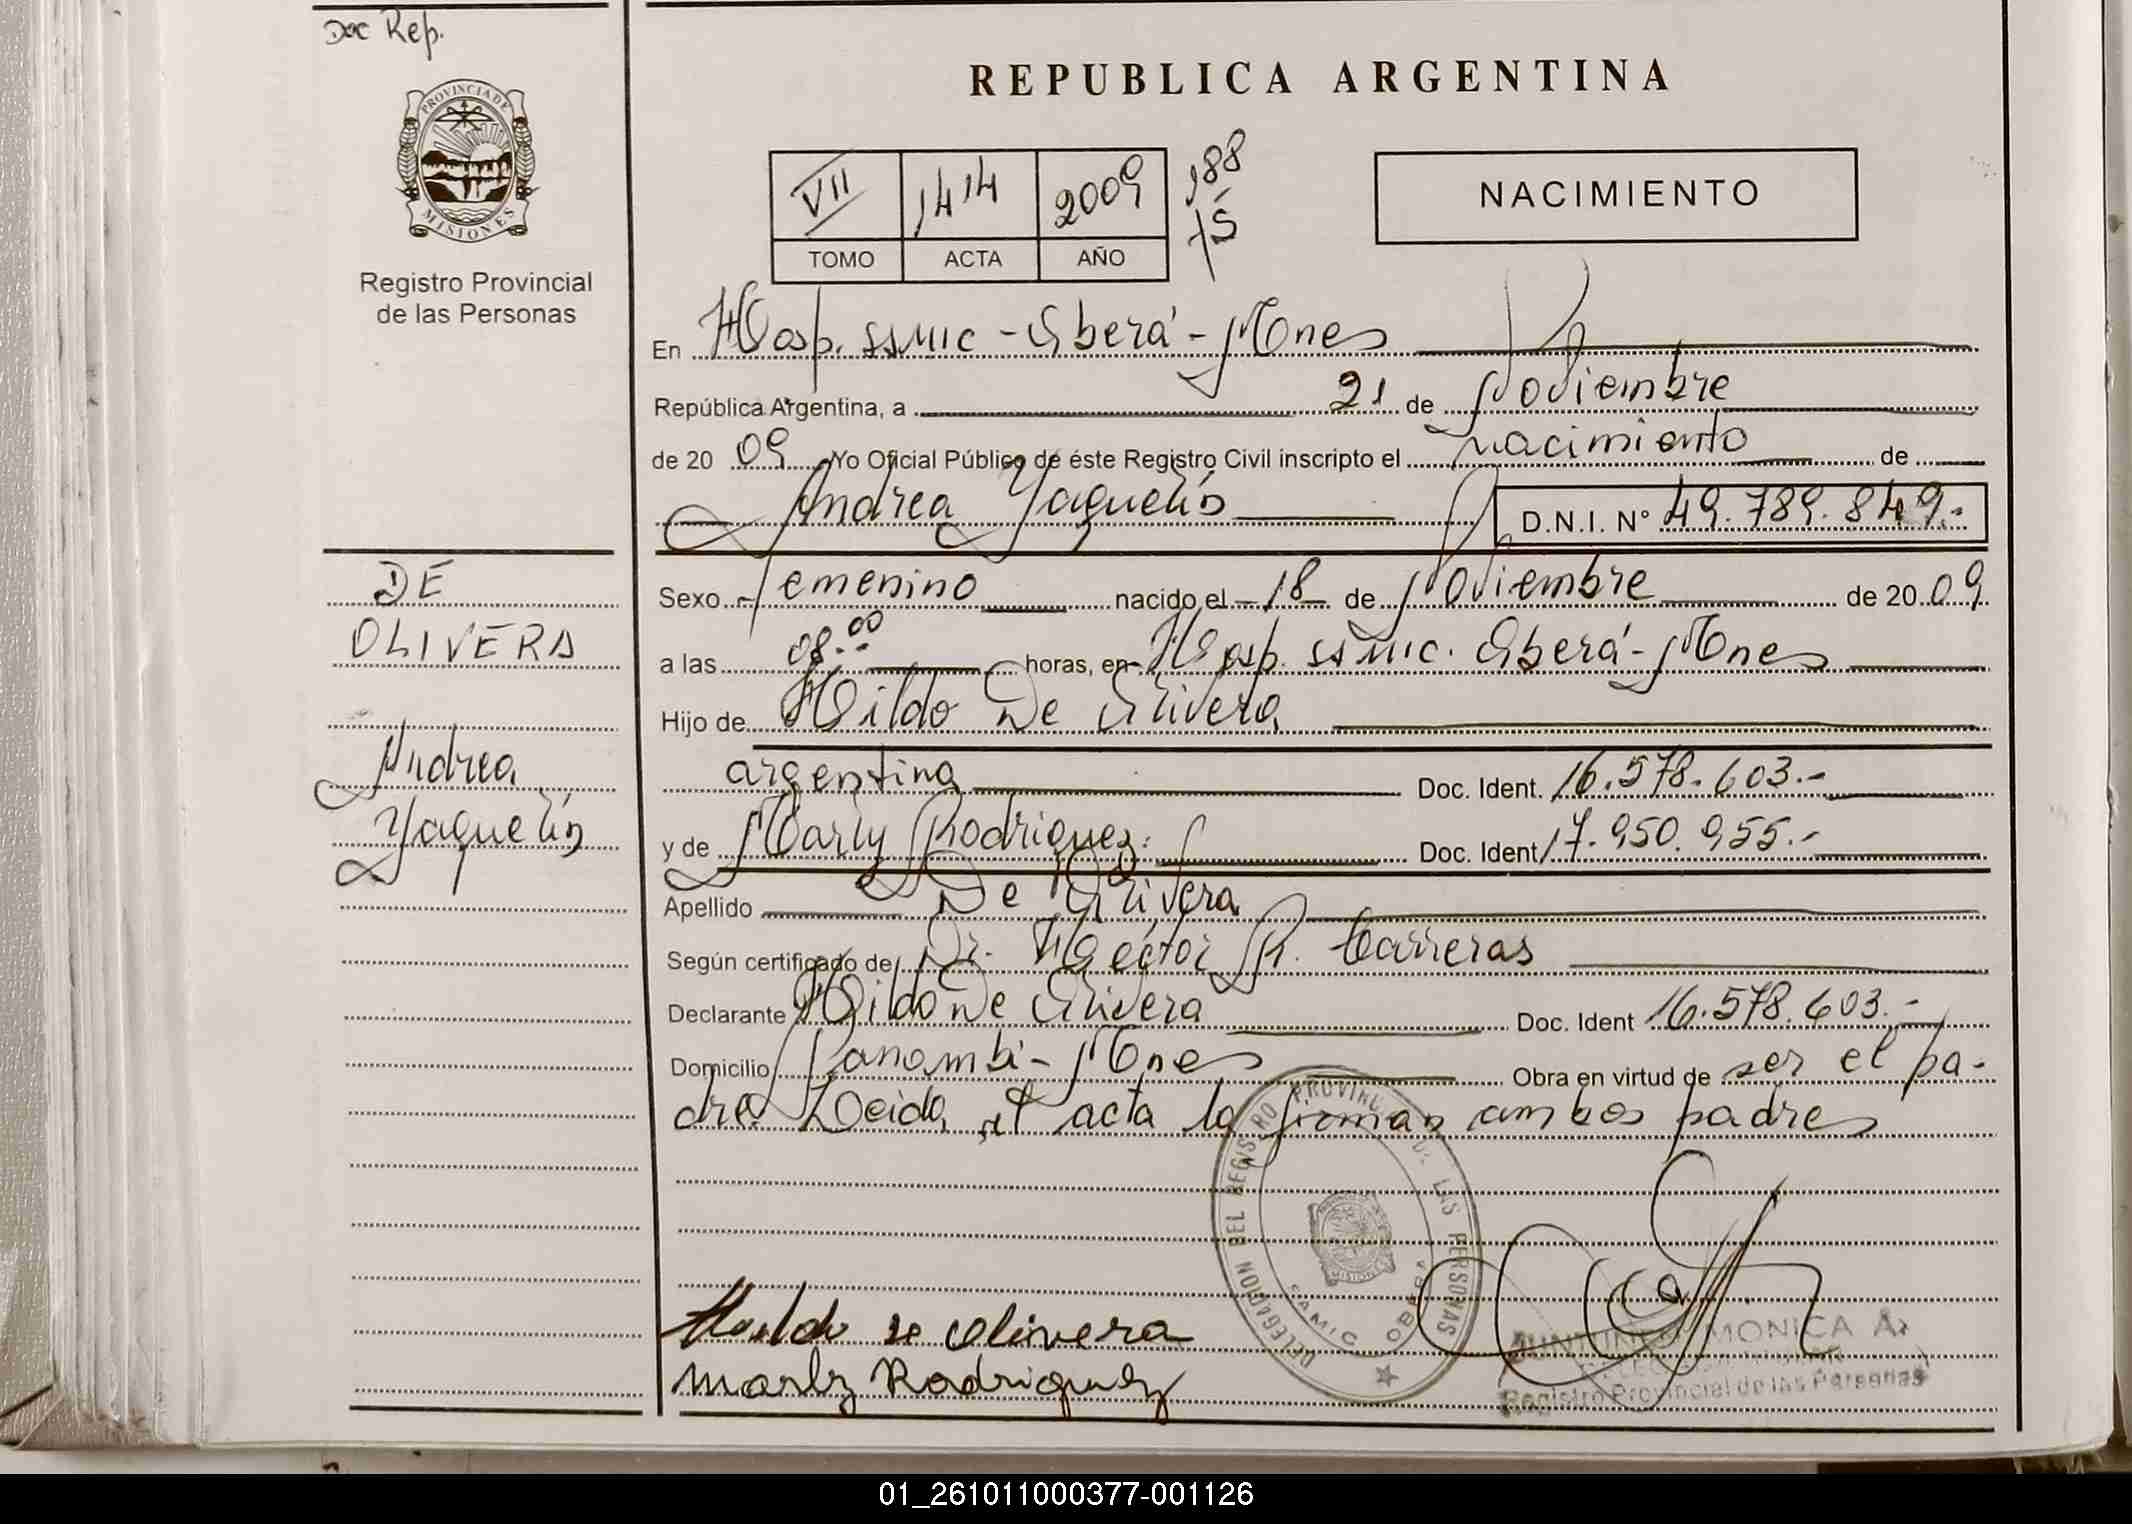 Doc Rep.
PROVINCIA DE
MISIONES
Registro Provincial
de las Personas
DE
OLIVERA
Andrea
Yaquelin
REPUBLICA ARGENTINA
VII 1414 2009
TOMO ACTA AÑO
188
75
NACIMIENTO
En Hosp. SSMIC - Oberá - Mnes
República Argentina, a 21 de Noviembre
de 2009 Yo Oficial Público de éste Registro Civil inscripto el nacimiento de
Andrea Yaquelin D.N.I. N° 49.789.849.-
Sexo femenino nacido el 18 de Noviembre de 2009
a las 08:00 horas, en Hosp. SSMIC. Oberá - Mnes
Hijo de Hildo De Olivera
argentina Doc. Ident. 16.578.603.-
y de Marly Rodriguez. Doc. Ident 17.950.955.-
Apellido De Olivera
Según certificado de Dr. Héctor R. Carreras
Declarante Hildo De Olivera Doc. Ident 16.578.603.-
Domicilio Panambi - Mnes Obra en virtud de ser el pa-
dre. Leida el acta la firman ambos padres
DELEGACION DEL REGISTRO PROVINCIAL DE LAS PERSONAS
SAMIC OBERA
Hildo de Olivera
Marly Rodriguez
MONICA A.
Registro Provincial de las Personas
01_261011000377-001126